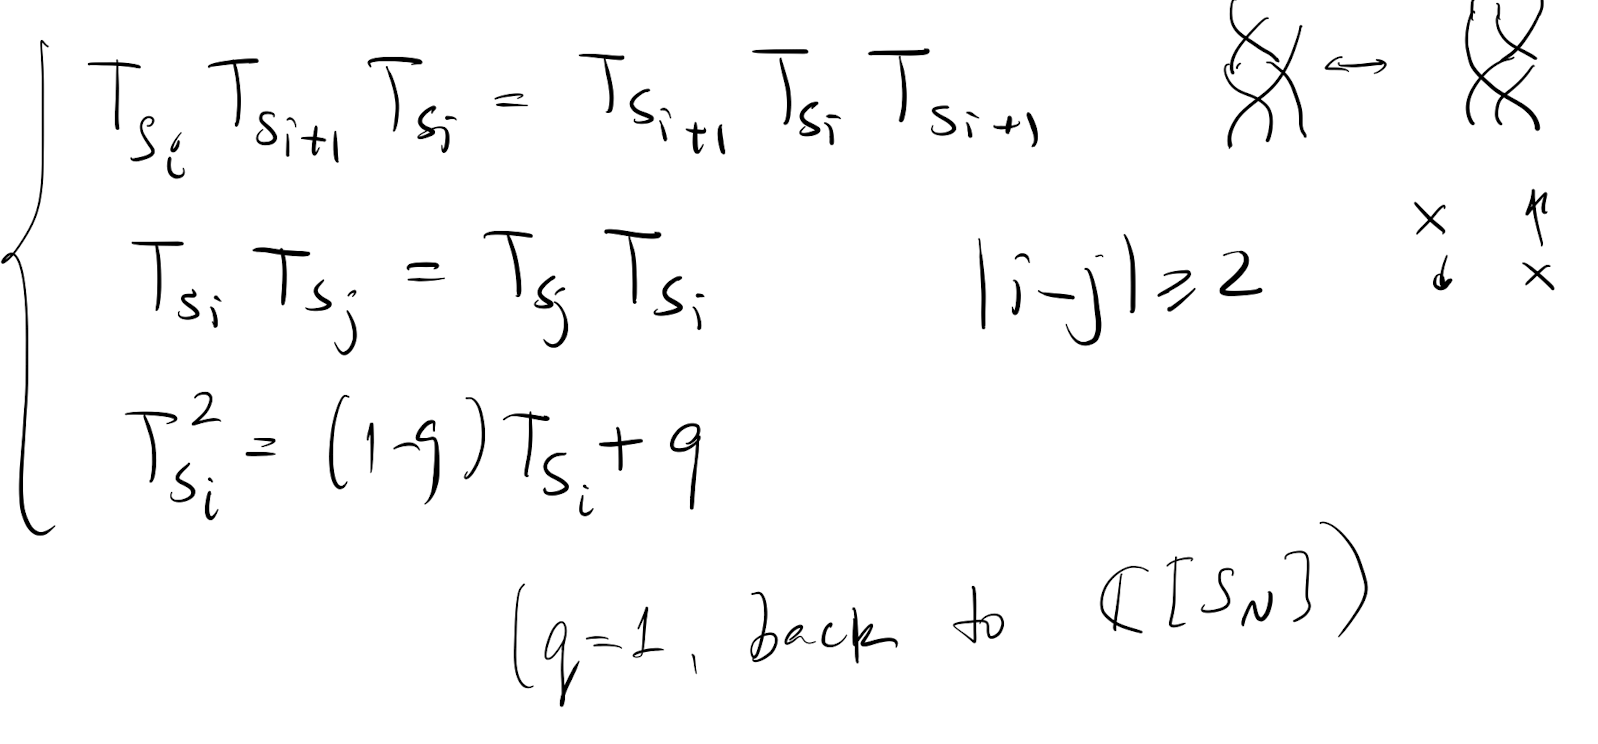 T_{s_i} T_{s_{i+1}} T_{s_i} = T_{s_{i+1}} T_{s_i} T_{s_{i+1}} ↔
T_{s_i} T_{s_j} = T_{s_j} T_{s_i} |i-j| ⩾ 2
T_{s_i}^2 = (1-q) T_{s_i} + q
(q=1, back to ℂ[S_N])